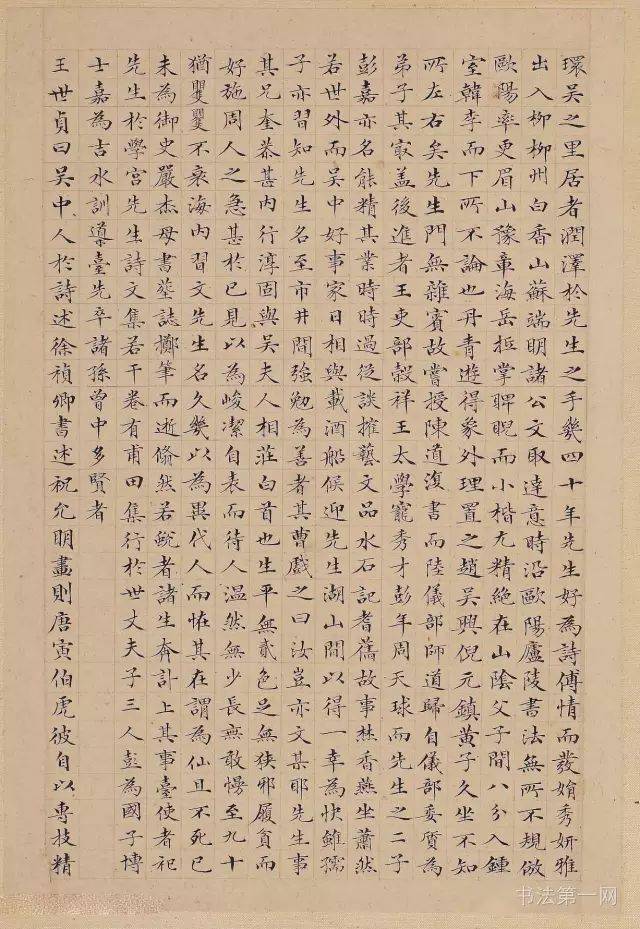 環吳之里居者潤澤於先生之手幾四十年先生好為詩傅情而發娟秀妍雅
出入柳柳州白香山蘇端明諸公文取達意時沿歐陽廬陵書法無所不規倣
歐陽率更眉山豫章海岳抵掌睥睨而小楷尤精絕在山陰父子間八分入鍾
室韓李而下所不論也丹青遊得象外理置之趙吳興倪元鎮黃子久坐不知
所左右矣先生門無雜賓故嘗授陳道復書而陸儀部師道歸自儀部委質為
弟子其最盖後進者王吏部穀祥王太學寵秀才彭年周天球而先生之二子
彭嘉亦名能精其業時時過從談搉藝文品水石記耆舊故事焚香燕坐蕭然
若世外而吳中好事家日相與載酒船候迎先生湖山間以得一幸為快雖孺
子亦習知先生名至市井間強勉為善者其曹戲之曰汝豈亦文某耶先生事
其兄奎恭甚內行淳固與吳夫人相莊白首也生平無貳色足無狹邪履貧而
好施周人之急甚於己見以為峻潔自表而待人温然無少長無敢慢至九十
猶矍矍不衰海內習文先生名久幾以為異代人而怪其在謂為仙且不死已
未為御史嚴杰母書墓誌擲筆而逝翛然若蛻者諸生奔計上其事臺使者祀
先生於學宮先生詩文集若干卷有甫田集行於世丈夫子三人彭為國子博
士嘉為吉水訓導臺先卒諸孫曾中多賢者
王世貞曰吳中人於詩述徐禎卿書述祝允明畫則唐寅伯虎彼自以專技精
书法第一网